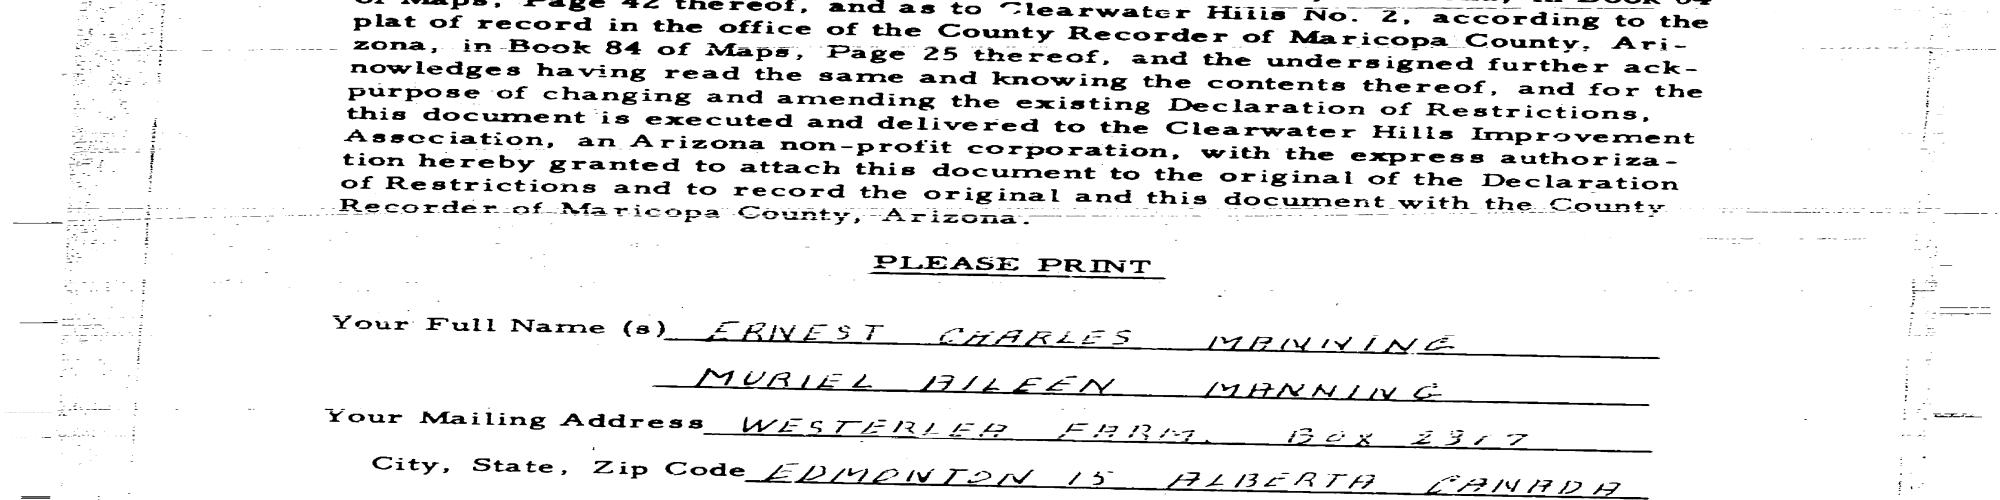 of Maps, Page 42 thereof, and as to Clearwater Hills No. 2, according to the
plat of record in the office of the County Recorder of Maricopa County, Ari-
zona, in Book 84 of Maps, Page 25 thereof, and the undersigned further ack-
nowledges having read the same and knowing the contents thereof, and for the
purpose of changing and amending the existing Declaration of Restrictions,
this document is executed and delivered to the Clearwater Hills Improvement
Association, an Arizona non-profit corporation, with the express authoriza-
tion hereby granted to attach this document to the original of the Declaration
of Restrictions and to record the original and this document with the County
Recorder of Maricopa County, Arizona.
PLEASE PRINT
Your Full Name (s) ERNEST CHARLES MANNING
MURIEL AILEEN MANNING
Your Mailing Address WESTERLEA FARM. BOX 2317
City, State, Zip Code EDMONTON 15 ALBERTA CANADA